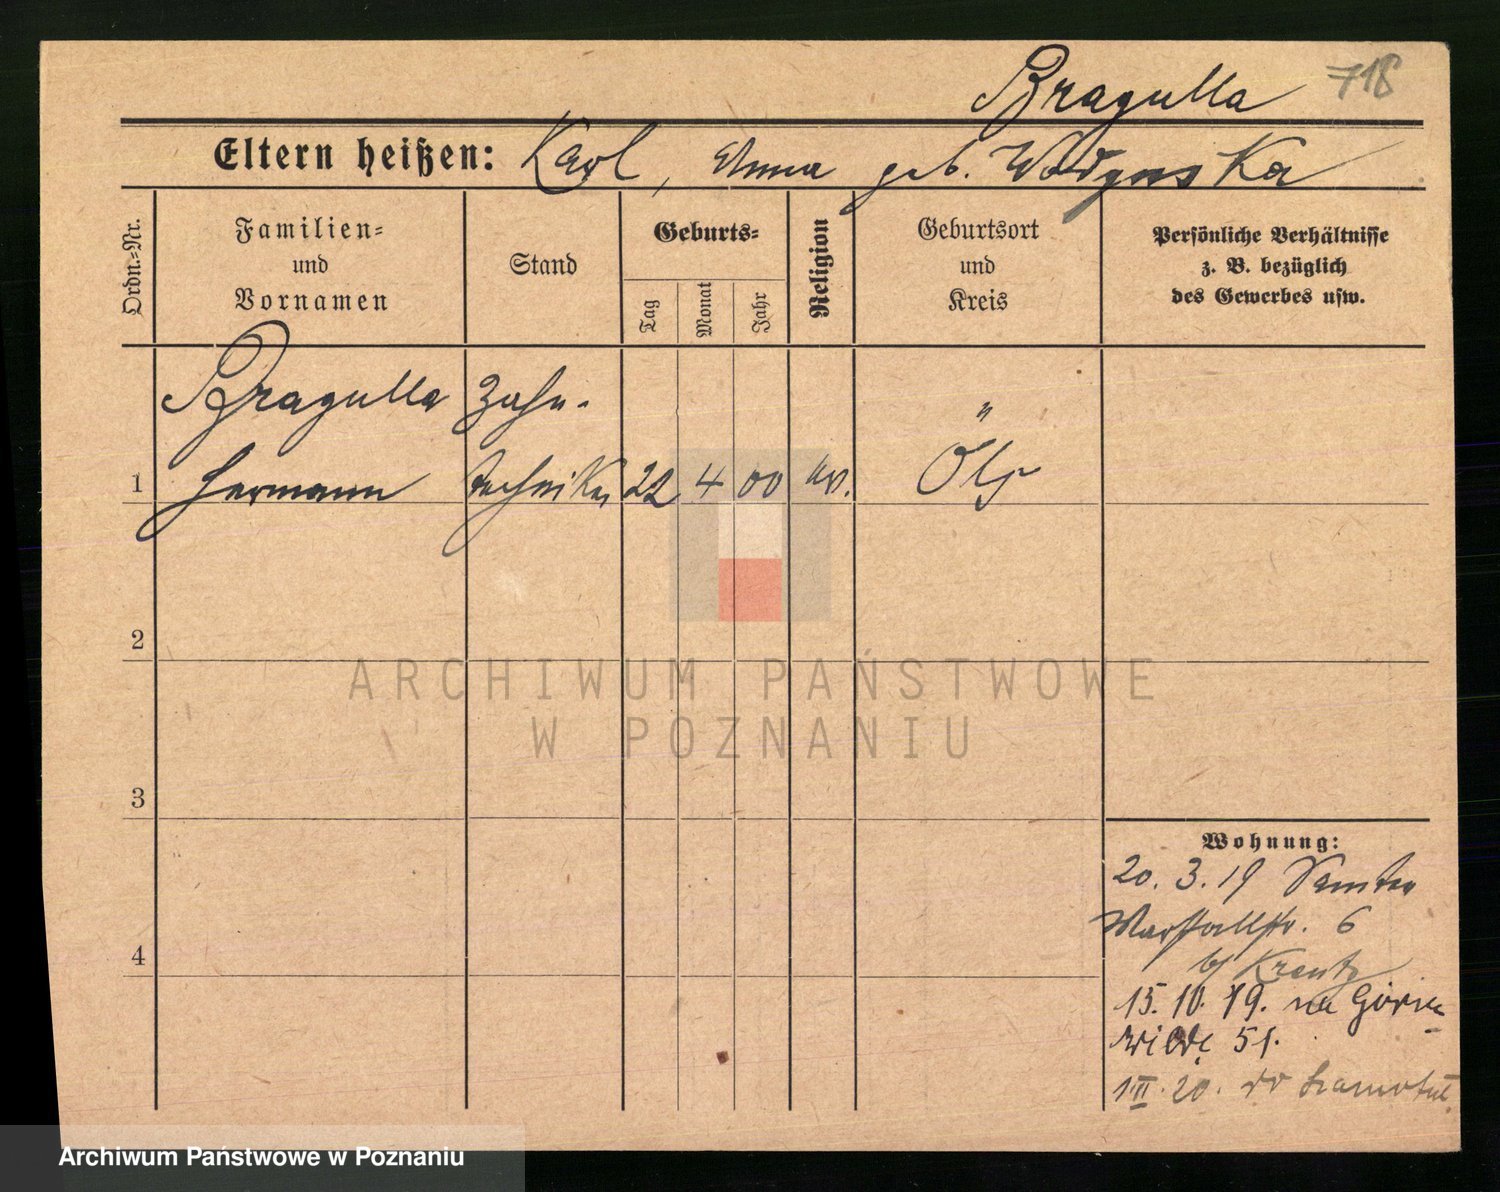 718
Bragulla
Eltern heißen: Karl, Anna geb.
Ordn.-Nr.
Familien-
und
Vornamen
Stand
Geburts-
Tag
Monat
Jahr
Religion
Geburtsort
und
Kreis
Persönliche Verhältnisse
z. B. bezüglich
des Gewerbes usw.
Bragulla Zahn-
1 Hermann techniker 22 4 00 Öls
2
3
4
Wohnung:
20. 3. 19 Samter
Marstallstr. 6
b/ Krentz
15. 10. 19. na Górn.
Wilde 51.
1.II.20. do Szamotuł
ARCHIWUM PAŃSTWOWE
W POZNANIU
Archiwum Państwowe w Poznaniu